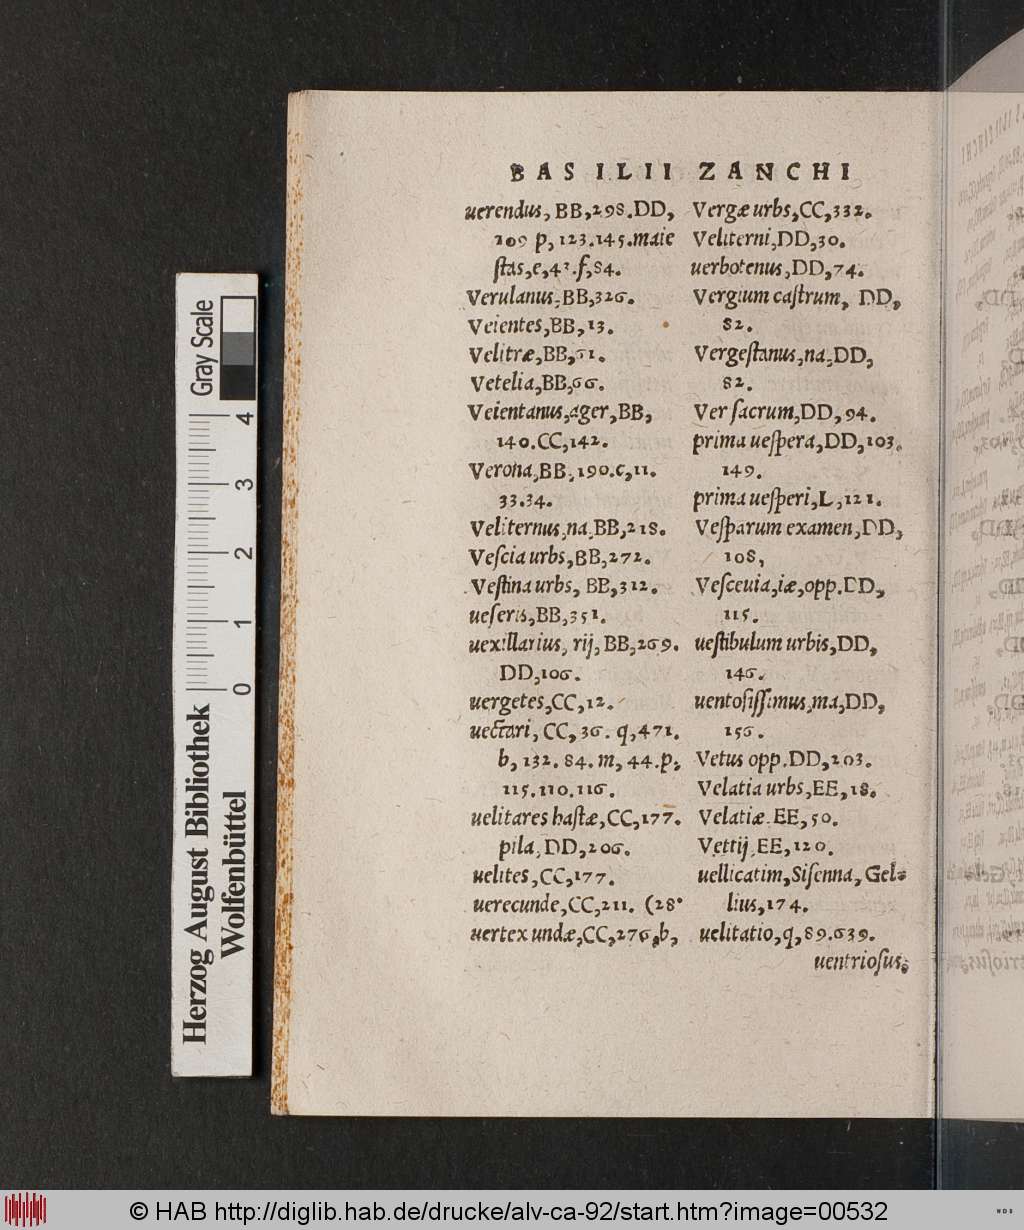 BASILII ZANCHI
uerendus, BB,298.DD,
109 p, 123.145.maie
stas,e,42.f,84.
Verulanus,BB,326.
Veientes,BB,13.
Velitræ,BB,61.
Vetelia,BB,66.
Veientanus,ager,BB,
140.CC,142.
Verona,BB,190.c,11.
33.34.
Veliternus,na,BB,218.
Vescia urbs,BB,272.
Vestina urbs, BB,312.
ueseris,BB,351.
uexillarius, rij, BB,269.
DD,106.
uergetes,CC,12.
uectari, CC, 36. q,471.
b, 132. 84. m, 44.p,
115.110.116.
uelitares hastæ,CC,177.
pila, DD,206.
uelites,CC,177.
uerecunde,CC,211. (28.
uertex undæ,CC,276,b,
Vergæ urbs,CC,332.
Veliterni,DD,30.
uerbotenus,DD,74.
Vergium castrum, DD,
82.
Vergestanus,na,DD,
82.
Ver sacrum,DD,94.
prima uespera,DD,103.
149.
prima uesperi,L,121.
Vesparum examen,DD,
108,
Vesceuia,iæ,opp.DD,
115.
uestibulum urbis,DD,
146.
uentosissimus,ma,DD,
156.
Vetus opp.DD,203.
Velatia urbs,EE,18.
Velatiæ.EE,50.
Vettij,EE,120.
uellicatim,Sisenna, Gel-
lius,174.
uelitatio,q,89.639.
uentriosus,
Gray Scale
4
3
2
1
0
Herzog August Bibliothek
Wolfenbüttel
© HAB http://diglib.hab.de/drucke/alv-ca-92/start.htm?image=00532